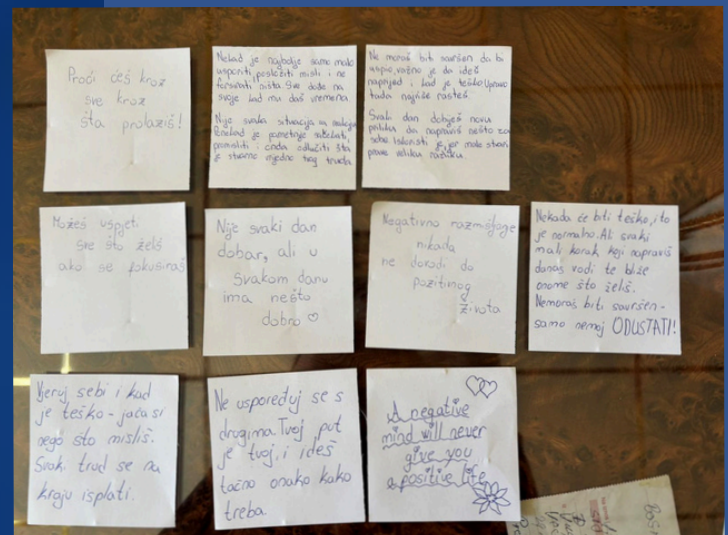 Proći ćeš kroz
sve kroz
šta prolaziš!
Nekad je najbolje samo malo
usporiti, posložiti misli i ne
forsirati ništa. Sve dođe na
svoje kad mu daš vremena
Nije svaka situacija za reakciju
Ponekad je pametnije sačekati,
promisliti i onda odlučiti šta
je stvarno vrijedno tvog truda
Ne moraš biti savršen da bi
uspio, važno je da ideš
naprijed i kad je teško. Upravo
tada najviše rasteš.
Svaki dan dobiješ novu
priliku da napraviš nešto za
sebe. Iskoristi je, jer male stvari
prave veliku razliku.
Možeš uspjeti
sve što želiš
ako se fokusiraš
Nije svaki dan
dobar, ali u
svakom danu
ima nešto
dobro ♡
Negativno razmišljanje
nikada
ne dovodi do
pozitivnog
života
Nekada će biti teško, i to
je normalno. Ali svaki
mali korak koji napraviš
danas vodi te bliže
onome što želiš.
Nemoraš biti savršen-
samo nemoj ODUSTATI!
Vjeruj sebi i kad
je teško - jača si
nego što misliš.
Svaki trud se na
kraju isplati.
Ne uspoređuj se s
drugima. Tvoj put
je tvoj, i ideš
tačno onako kako
treba.
A negative
mind will never
give you
a positive life